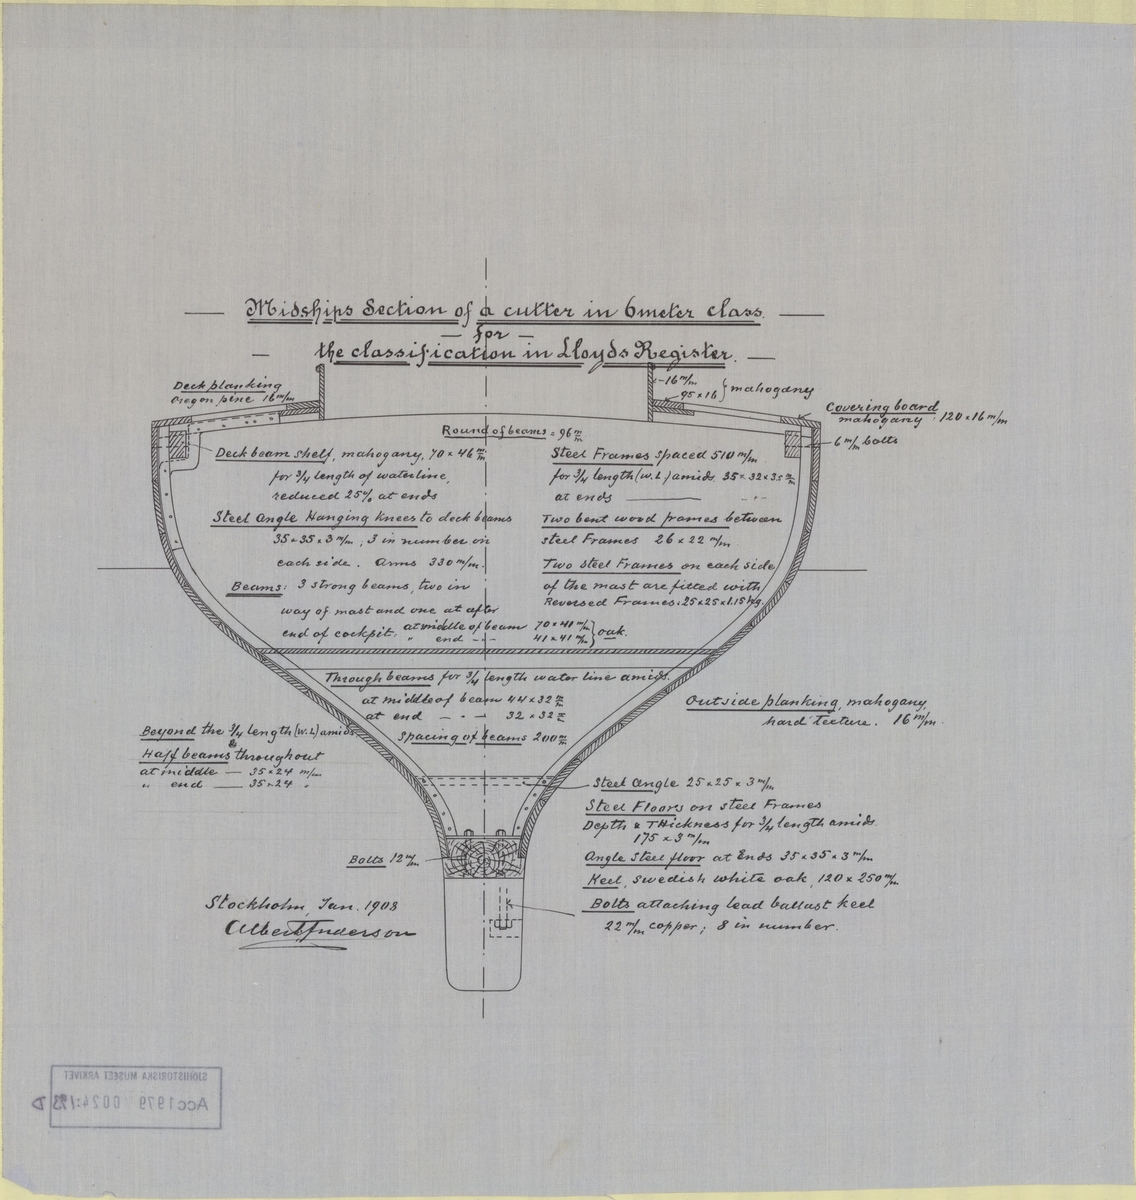 Midships Section of a cutter in 6meter class.
— for —
the classification in Lloyds Register.
Deck planking
Oregon pine 16 m/m
16 m/m
95 x 16 } mahogany
Covering board
mahogany 120 x 16 m/m
6 m/m bolts
Round of beams = 96 m/m
Deck beam shelf, mahogany, 70 x 46 m/m
for 3/4 length of waterline,
reduced 25% at ends
Steel Angle Hanging Knees to deck beams
35 x 35 x 3 m/m; 3 in number on
each side. Arms 330 m/m.
Beams: 3 strong beams, two in
way of mast and one at after
end of cockpit. at middle of beam 70 x 41 m/m } oak.
" end -"- 41 x 41 m/m
Steel Frames spaced 510 m/m
for 3/4 length (W.L) amids. 35 x 32 x 3.5 m/m
at ends —— -"-
Two bent wood frames between
steel Frames 26 x 22 m/m
Two steel Frames on each side
of the mast are fitted with
Reversed Frames: 25 x 25 x 1.15 kg.
Through beams for 3/4 length water line amids.
at middle of beam 44 x 32 m/m
at end -"- 32 x 32 m/m
Spacing of beams 200 m/m
Outside planking, mahogany,
hard texture. 16 m/m.
Beyond the 3/4 length (W.L) amids
&
Half beams throughout
at middle — 35 x 24 m/m
" end — 35 x 24 "
Steel Angle 25 x 25 x 3 m/m
Steel Floors on steel Frames
Depth & Thickness for 3/4 length amids.
175 x 3 m/m
Angle Steel floor at Ends 35 x 35 x 3 m/m
Keel, Swedish white oak, 120 x 250 m/m
Bolts attaching lead ballast keel
22 m/m copper; 8 in number.
Bolts 12 m/m
Stockholm, Jan. 1908
Albert Anderson
SJÖHISTORISKA MUSEET ARKIVET
Acc 1979 0024:193 D